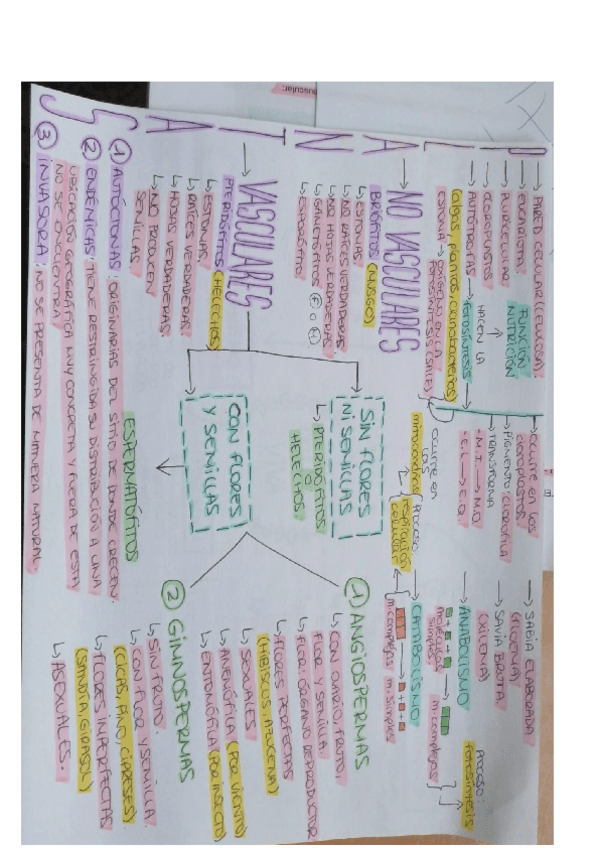 PLANTAS
→ PARED CELULAR (CELULOSA)
→ EUCARIOTAS
→ PLURICELULAR
→ CLOROPLASTOS
→ AUTÓTROFAS → FOTOSÍNTESIS
(algas, plantas, cianobacterias)
FUNCIÓN
NUTRICIÓN
HACEN LA
ESTOMA → OXÍGENO EN LA
FOTOSÍNTESIS (SALE)
ocurre en los
cloroplastos
PIGMENTO: CLOROFILA
TRANSFORMA
- M.I. → M.O.
- E.L → E.Q.
→ SABIA ELABORADA
(FLOEMA)
→ SAVIA BRUTA
(XILEMA)
→ ANABOLISMO
moléculas simples
m. complejas
Proceso:
fotosíntesis
→ CATABOLISMO
m. complejas
m. simples
Proceso:
respiración
celular
ocurre en
las
mitocondrias
→ NO VASCULARES
BRIÓFITOS (MUSGO)
↳ ESTOMAS
↳ NO RAÍCES VERDADERAS
↳ NO HOJAS VERDADERAS
↳ GAMETÓFITOS
↳ ESPORÓFITO
→ VASCULARES
PTERIDÓFITOS (HELECHOS)
↳ ESTOMAS
↳ RAÍCES VERDADERAS
↳ HOJAS VERDADERAS
↳ NO PRODUCEN
SEMILLAS
SIN FLORES
NI SEMILLAS
↳ PTERIDÓFITOS
O
HELECHOS
CON FLORES
Y SEMILLAS
ESPERMATÓFITOS
1) ANGIOSPERMAS
↳ CON OVARIO, FRUTO,
FLOR Y SEMILLA
FLOR: ÓRGANO REPRODUCTOR
↳ FLORES PERFECTAS
(HIBISCUS, AZUCENA)
↳ SEXUALES
↳ ANEMÓFILA (POR VIENTO)
↳ ENTOMÓFILA (POR INSECTO)
2) GINNOSPERMAS
↳ SIN FRUTO.
↳ CON FLOR Y SEMILLA.
(CICAS, PINO, CIPRESES)
↳ FLORES IMPERFECTAS
(SANDÍA, GIRASOL)
↳ ASEXUALES.
1) AUTÓCTONAS: ORIGINARIAS DEL SITIO DE DONDE CRECEN.
2) ENDÉMICAS: TIENE RESTRINGIDA SU DISTRIBUCIÓN A UNA
UBICACIÓN GEOGRÁFICA MUY CONCRETA Y FUERA DE ESTA
NO SE ENCUENTRA.
3) INVASORA: NO SE PRESENTA DE MANERA NATURAL.